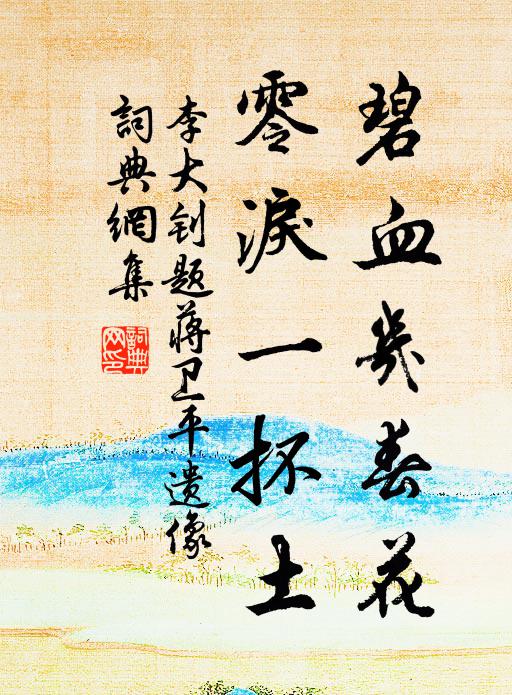 碧血幾春花
零淚一抔土
李大钊题蔣卫平遺像
詞典網集
詞典网印